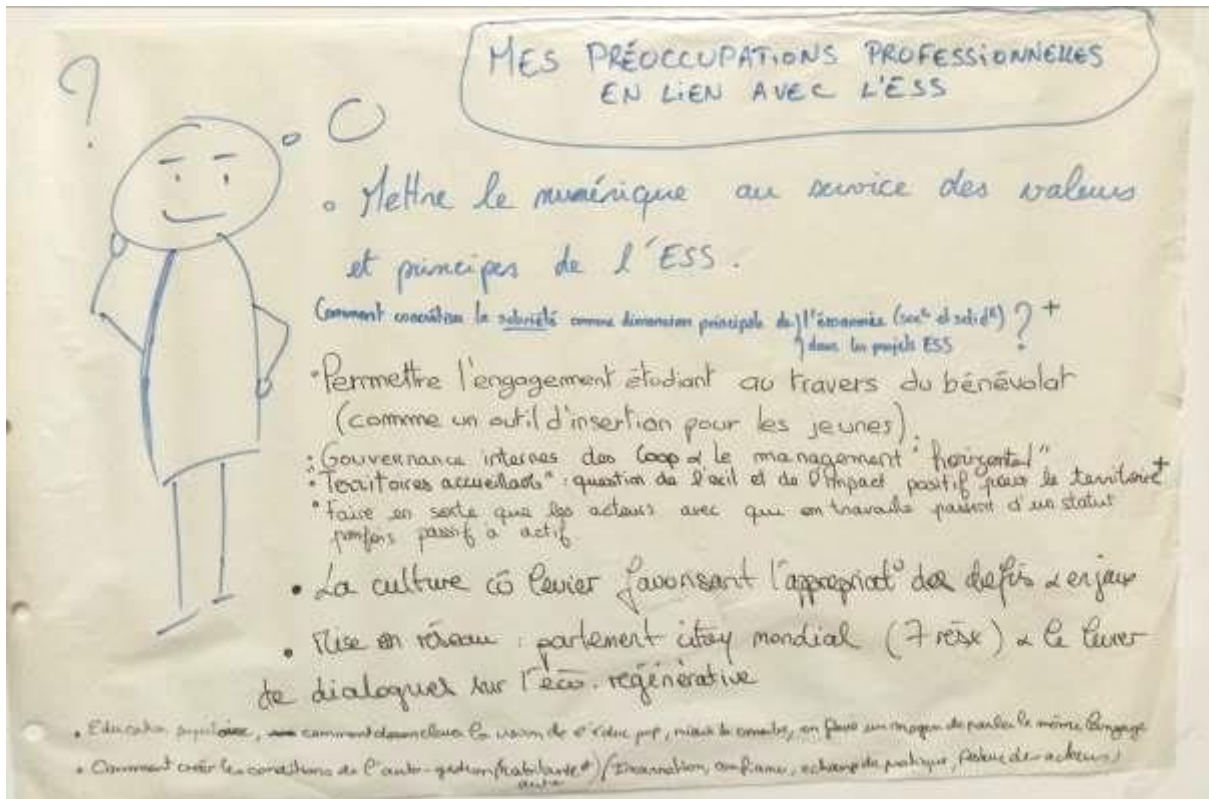 ?
MES PRÉOCCUPATIONS PROFESSIONNELLES
EN LIEN AVEC L'ESS
• Mettre le numérique au service des valeurs
et principes de l'ESS.
Comment la sobriété comme dimension principale de l'économie (soc^le et solid^R) ? +
dans les projets ESS
• Permettre l'engagement étudiant au travers du bénévolat
(comme un outil d'insertion pour les jeunes).
• Gouvernance internes des Coop & le management "horizontal"
• "Territoires accueillants" : question de l'exil et de l'impact positif pour le territoire +
• Faire en sorte que les acteurs avec qui on travaille passent d'un statut
parfois passif à actif
• La culture cô levier favorisant l'appropriat° des défis & enjeux
• Mise en réseau : parlement citoy mondial (7 résx) & le
de dialogues sur l'éco. régénérative
• Education populaire, comment la de l'éduc pop, mieux la connaître, en faire un moyen de parler le même langage
• Comment créer les conditions de l'auto-gestion (habitante +) / Incarnation, confiance, échange de pratique, des acteurs